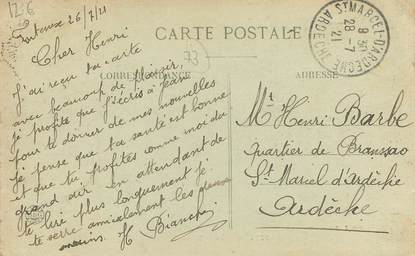 12-6
26/7/21
CARTE POSTALE
ST MARCEL-D'ARDÈCHE ARDÈCHE
9 30
28 -7
21
73
Cher Henri
J'ai reçu ta carte
avec beaucoup de plaisir.
Je profite que j'écris à Jean
pour te donner de mes nouvelles
je pense que ta santé est bonne
et que tu profites comme moi du
grand air en attendant de
te lire plus longuement je
te serre amicalement les
mains. H Bianchi
CORRESPONDANCE
ADRESSE
Mr Henri Barbe
quartier de
St Marcel d'Ardèche
Ardèche